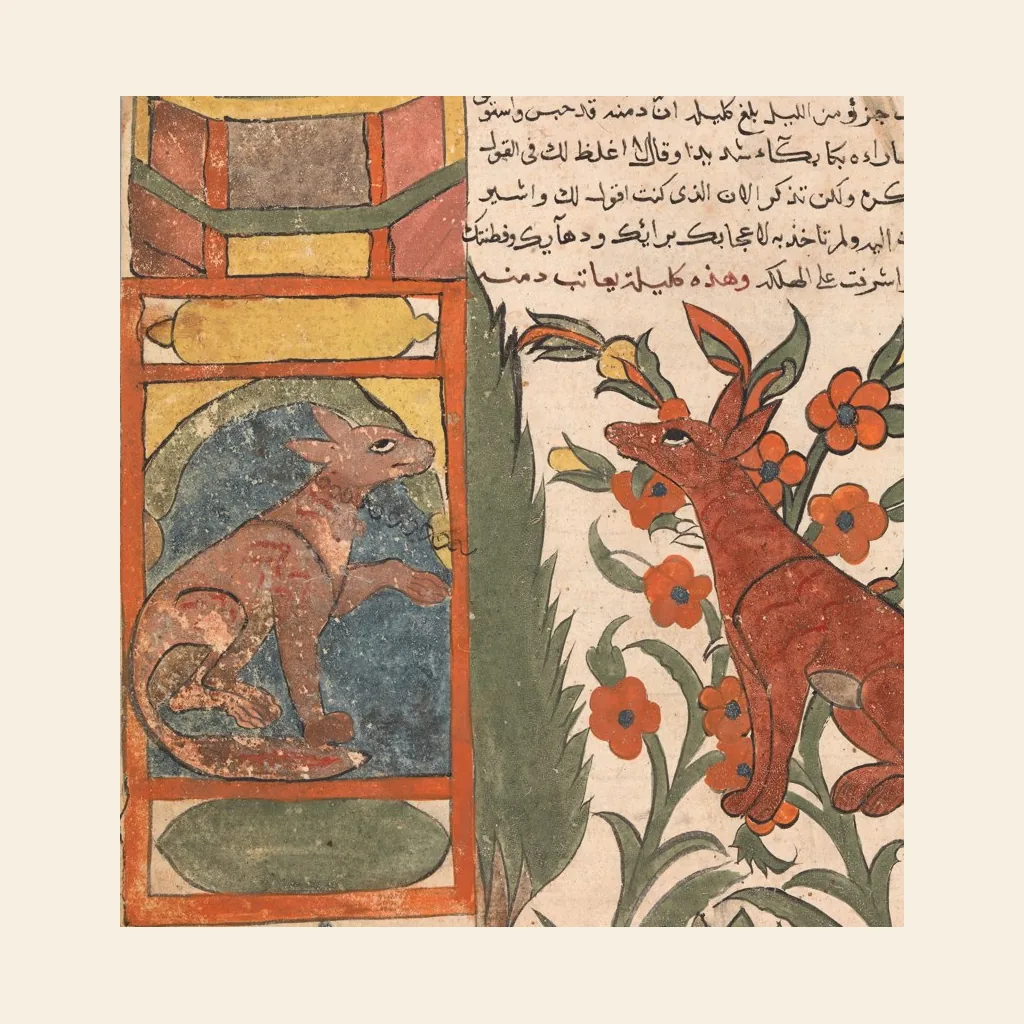 جزؤ من الليل بلغ كليلة ان دمنه قد حبس واستو
اراه بكا بكآء شديدا وقال لا اغلظ لك فى القول
ولكن تذكر الان الذى كنت اقول لك واشير
اليه ولم تاخذ به لاعجابك برايك ودهايك وفطنتك
اشرفت على الهلكه وهذه كليلة يعاتب دمنه